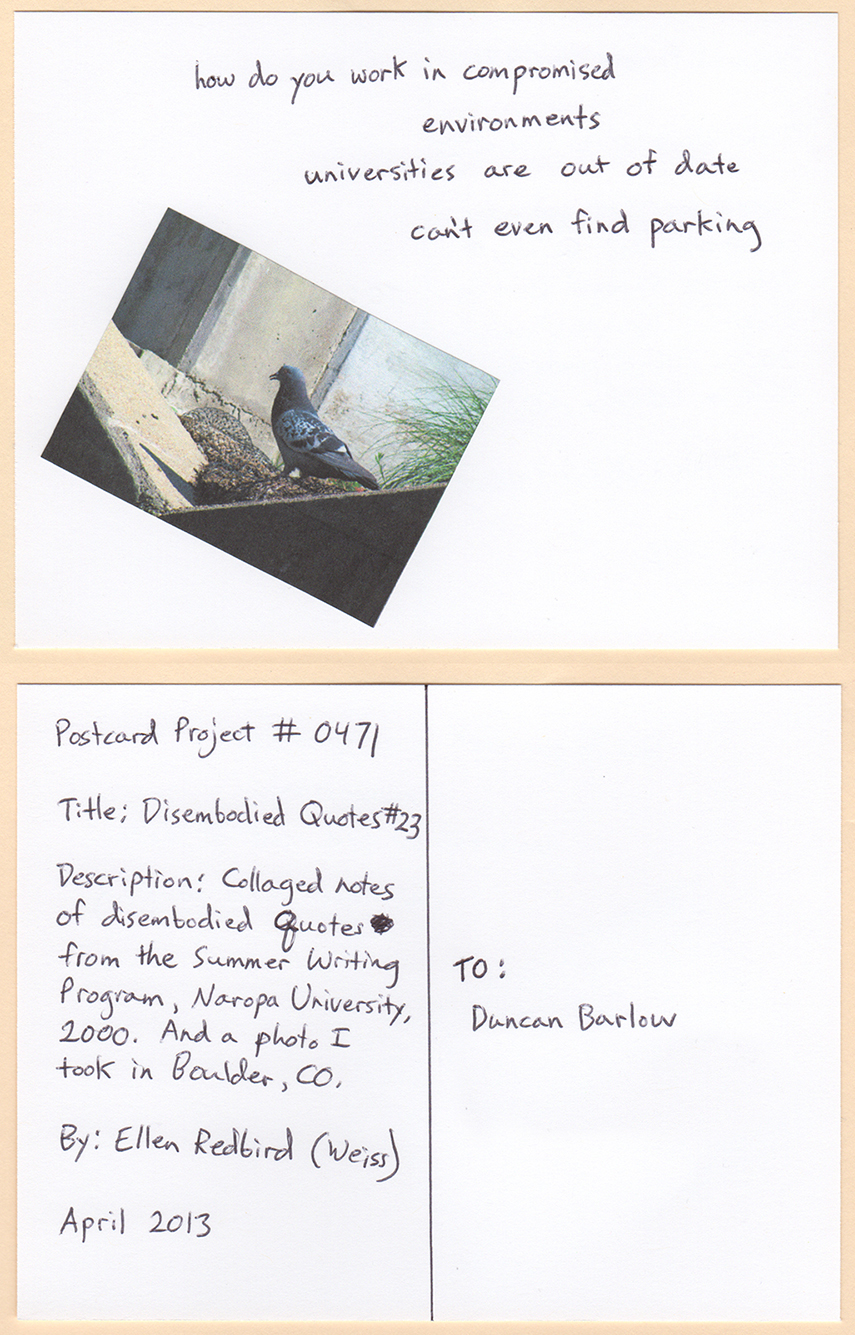 how do you work in compromised
environments
universities are out of date
can't even find parking
Postcard Project # 0471
Title: Disembodied Quotes #23
Description: Collaged notes
of disembodied Quotes
from the Summer Writing
Program, Naropa University,
2000. And a photo I
took in Boulder, CO.
By: Ellen Redbird (Weiss)
April 2013
TO:
Duncan Barlow